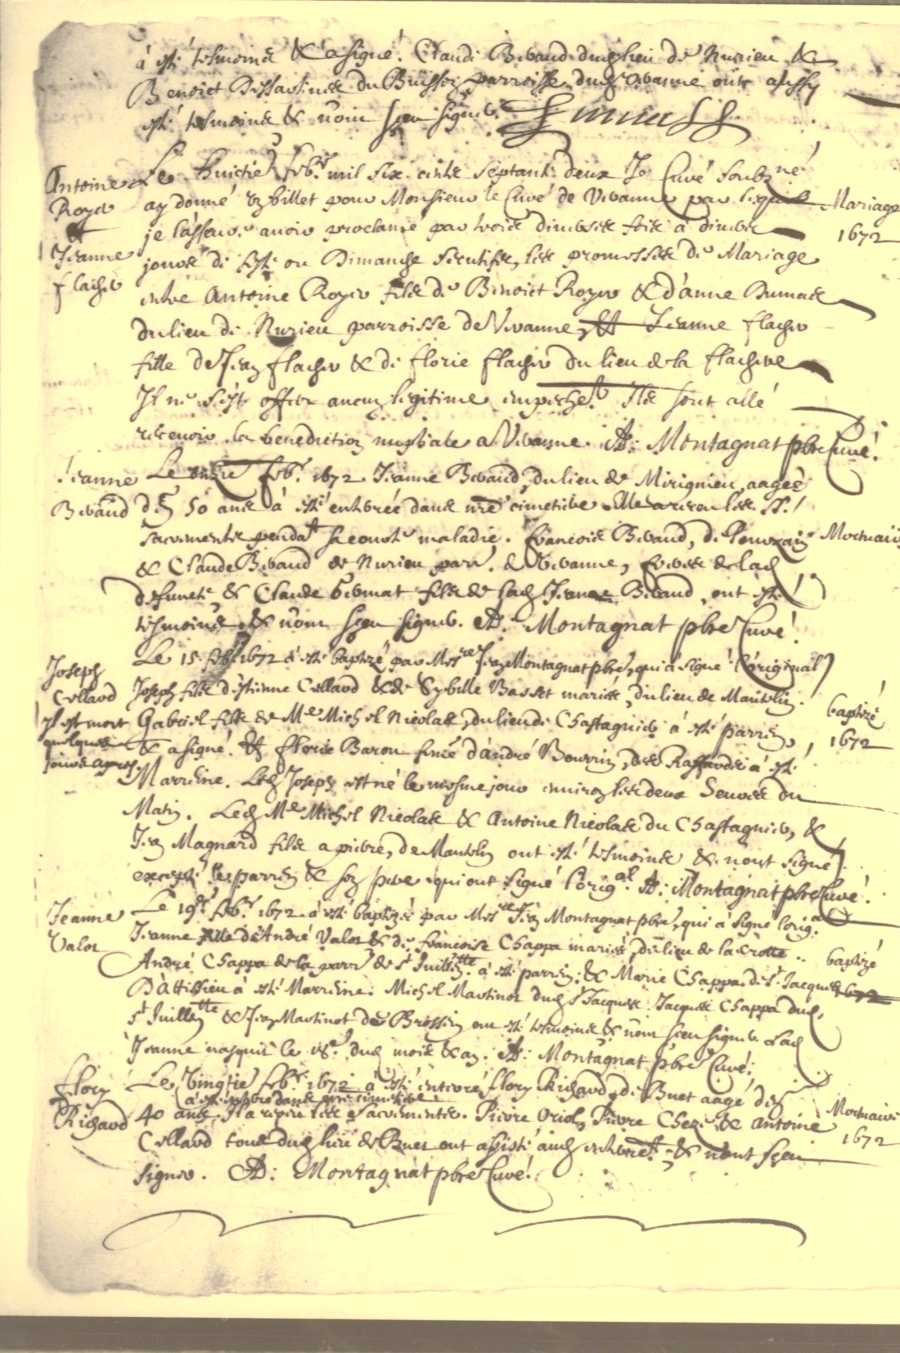 à esté tesmoins & a signé. Claude Beraud dudt lieu de Nurieu &
Benoict du Buisson parroisse dudt Vivanne ont aussy
esté tesmoins & n'ont sceu signer.
Antoine Royer et Jeanne flacher
Mariage 1672
Le huictie febr. mil six cents septante deux Je Curé soubzné
ay donné un billet pour Monsieur le Curé de Vivanne par lequel
je l'asseure avoir proclamé par trois diverses fois à divers
jours de feste ou Dimanche les promesses de Mariage
entre Antoine Royer fils de Benoict Royer & d'anne Dumas
du lieu de Nurieu parroisse de Vivanne, & Jeanne flacher
fille de Jean flacher & de florie flacher du lieu de la flachere
Il ne s'est offer aucun legitime empeschet. Ils sont allé
recevoir la benediction nuptiale a Vivanne. A: Montagnat pbre Curé.
Jeanne Beraud
Mortuaire
Le febr. 1672 Jeanne Beraud, du lieu de Mirignieu, aagée
d'en 50 ans à esté enterrée dans nre cimetiere. Elle a receu les SS.
Sacrements pendat sa courte maladie. francois Beraud, de
& Claude Beraud de Nurieu parr. de Vivanne, freres de lad
defuncte & Claude fils de lad Jeanne Beraud, ont esté
tesmoins & n'ont sceu signer. A: Montagnat pbre Curé.
Joseph Collaud Il est mort quelques jours apres
baptisé 1672
Le 15 feb. 1672 a esté baptizé par Mesre Jean Montagnat pbre, qui a signé l'original
Joseph fils d'Etienne Collaud & de Sybille Basset mariés, du lieu de Mantelin.
Gabriel fils de Me Michel Nicolas, du lieu de Chastagnier à esté parrin,
& a signé. Et florie Baron feme d'andré Bouvrin, des à esté
Marreine. Led Joseph est né le mesme jour environ les deux heures du
Matin. Led Me Michel Nicolas & Antoine Nicolas du Chastagnier, &
Jean Magnard fils a pierre, de Mantelin ont esté tesmoins & n'ont signé
excepté le parrin & son pere qui ont signé l'origal. A: Montagnat pbre Curé.
Jeanne Valot
baptisé 1672
Le 19e febr. 1672 a esté baptisée par Mesre Jean Montagnat pbre, qui à signé l'origal
Jeanne fille de André Valot & de francoise Chappa mariés, du lieu de la Crotte.
André Chappa de la parr. de St Juillien tte à esté parrin, & Marie Chappa de St Jacques
à esté Marreine. Michel Martinot dud St Jacques Jacques Chappa dud
St Juillen tte & Jean Martinot de Brossin ont esté tesmoins & n'ont sceu signer. Lad
Jeanne nasquit le 18e dud mois & an. A: Montagnat pbre Curé.
flory Richaud
Mortuaire 1672
Le vingtie febr. 1672 a esté enterré flory Richaud, de Buet aagé d'en
a esté enterré dans nre cimetiere
40 ans, Il a receu les Sacrements. Pierre Oriol, Pierre Cheze & Antoine
Collaud tous dud lieu de Buet ont assisté aud enterret & n'ont sceu
signer. A: Montagnat pbre Curé.